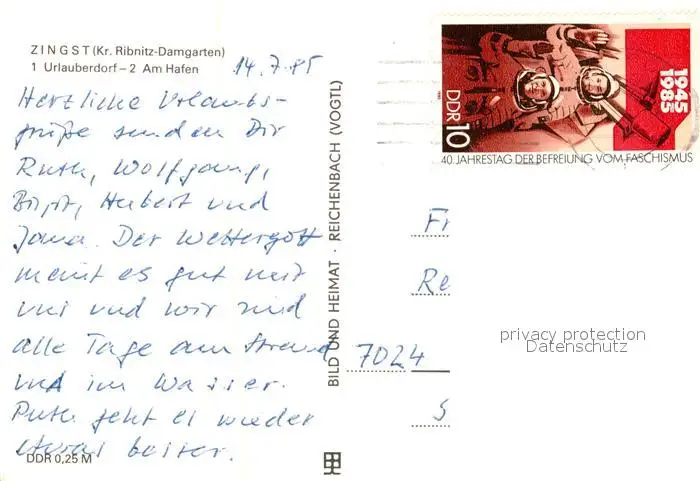 ZINGST (Kr. Ribnitz-Damgarten)
1 Urlauberdorf – 2 Am Hafen
14.7.85
Herzliche Urlaubs-
grüße senden Dir
Ruth, Wolfgang,
Birgit, Hubert und
Jana. Der Wettergott
meint es gut mit
uns und wir sind
alle Tage am Strand
und im Wasser.
Ruth geht es wieder
etwas besser.
DDR 0,25 M
BILD UND HEIMAT · REICHENBACH (VOGTL)
DDR 10
1945
1985
40. JAHRESTAG DER BEFREIUNG VOM FASCHISMUS
Fr
Re
7024
S
privacy protection
Datenschutz